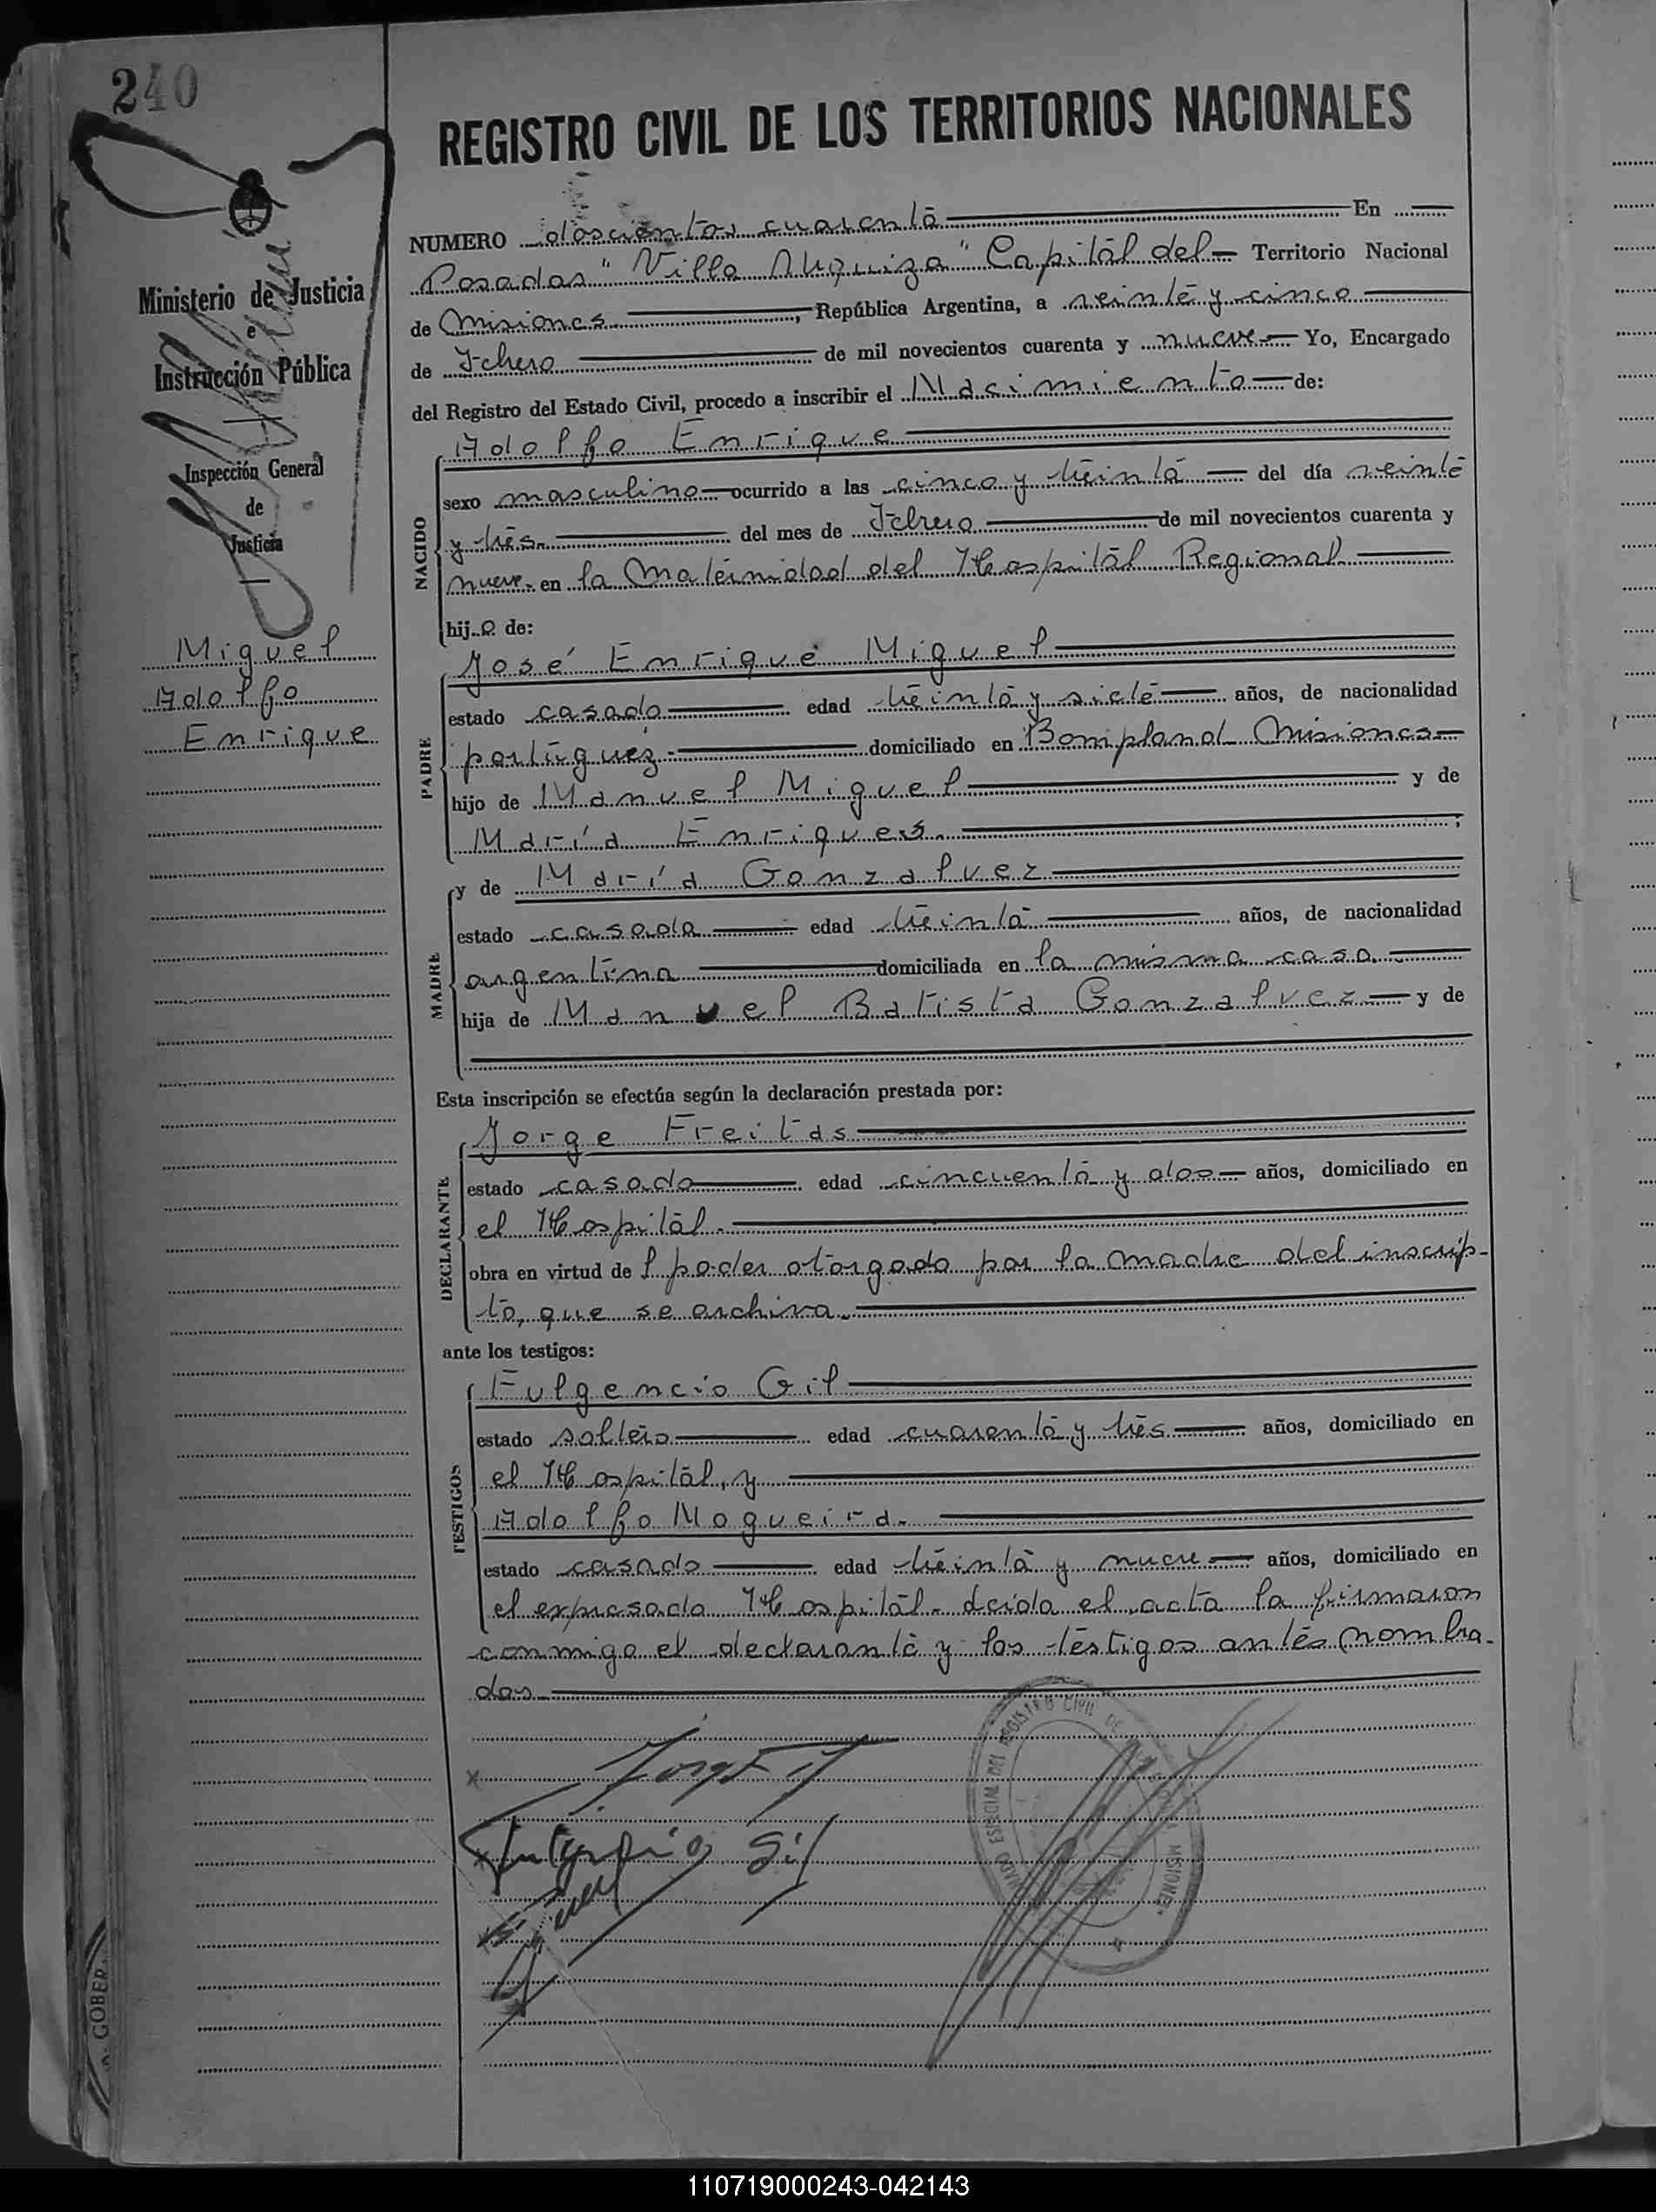 240
REGISTRO CIVIL DE LOS TERRITORIOS NACIONALES
Ministerio de Justicia
e
Instrucción Pública
Inspección General
de
Justicia
Miguel
Adolfo
Enrique
NUMERO doscientos cuarenta En
Posadas "Villa Urquiza" Capital del Territorio Nacional
de Misiones, República Argentina, a veinte y cinco
de Febrero de mil novecientos cuarenta y nueve Yo, Encargado
del Registro del Estado Civil, procedo a inscribir el Nacimiento de:
NACIDO
Adolfo Enrique
sexo masculino ocurrido a las cinco y treinta del día veinte
y tres. del mes de Febrero de mil novecientos cuarenta y
nueve. en la Maternidad del Hospital Regional.
hij.o de:
PADRE
José Enrique Miguel
estado casado edad treinta y siete años, de nacionalidad
portuguez domiciliado en Bompland Misiones
hijo de Manuel Miguel y de
María Enriques. ;
MADRE
y de María Gonzalvez
estado casada edad treinta años, de nacionalidad
argentina domiciliada en la misma casa.
hija de Manuel Batista Gonzalvez y de
Esta inscripción se efectúa según la declaración prestada por:
DECLARANTE
Jorge Freitas
estado casado edad cincuenta y dos años, domiciliado en
el Hospital.
obra en virtud de l poder otorgado por la madre del inscrip-
to, que se archiva.
ante los testigos:
TESTIGOS
Fulgencio Gil
estado soltero edad cuarenta y tres años, domiciliado en
el Hospital, y
Adolfo Nogueira.
estado casado edad treinta y nueve años, domiciliado en
el expresado Hospital. Leída el acta la firmaron
conmigo el declarante y los testigos antes nombra-
dos.
REGISTRO CIVIL DE
MISIONES
Fulgencio Gil
GOBER.
110719000243-042143